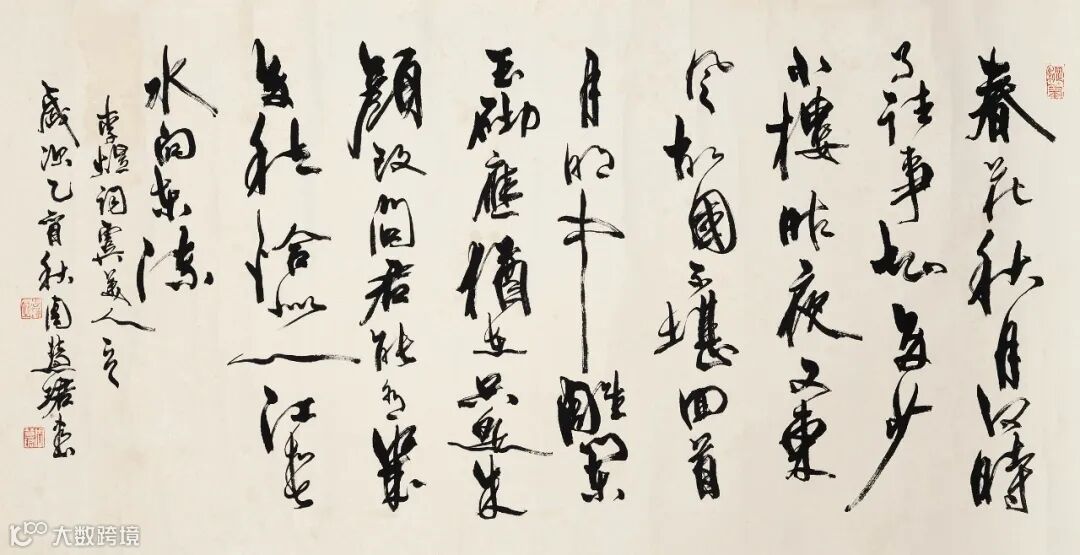 春花秋月何時
了往事知多少
小樓昨夜又東
風故國不堪回首
月明中雕闌
玉砌應猶在只是朱
顏改問君能有幾
多愁恰似一江春
水向東流
李煜詞虞美人
歲次乙酉秋周慧珺書
大数跨境